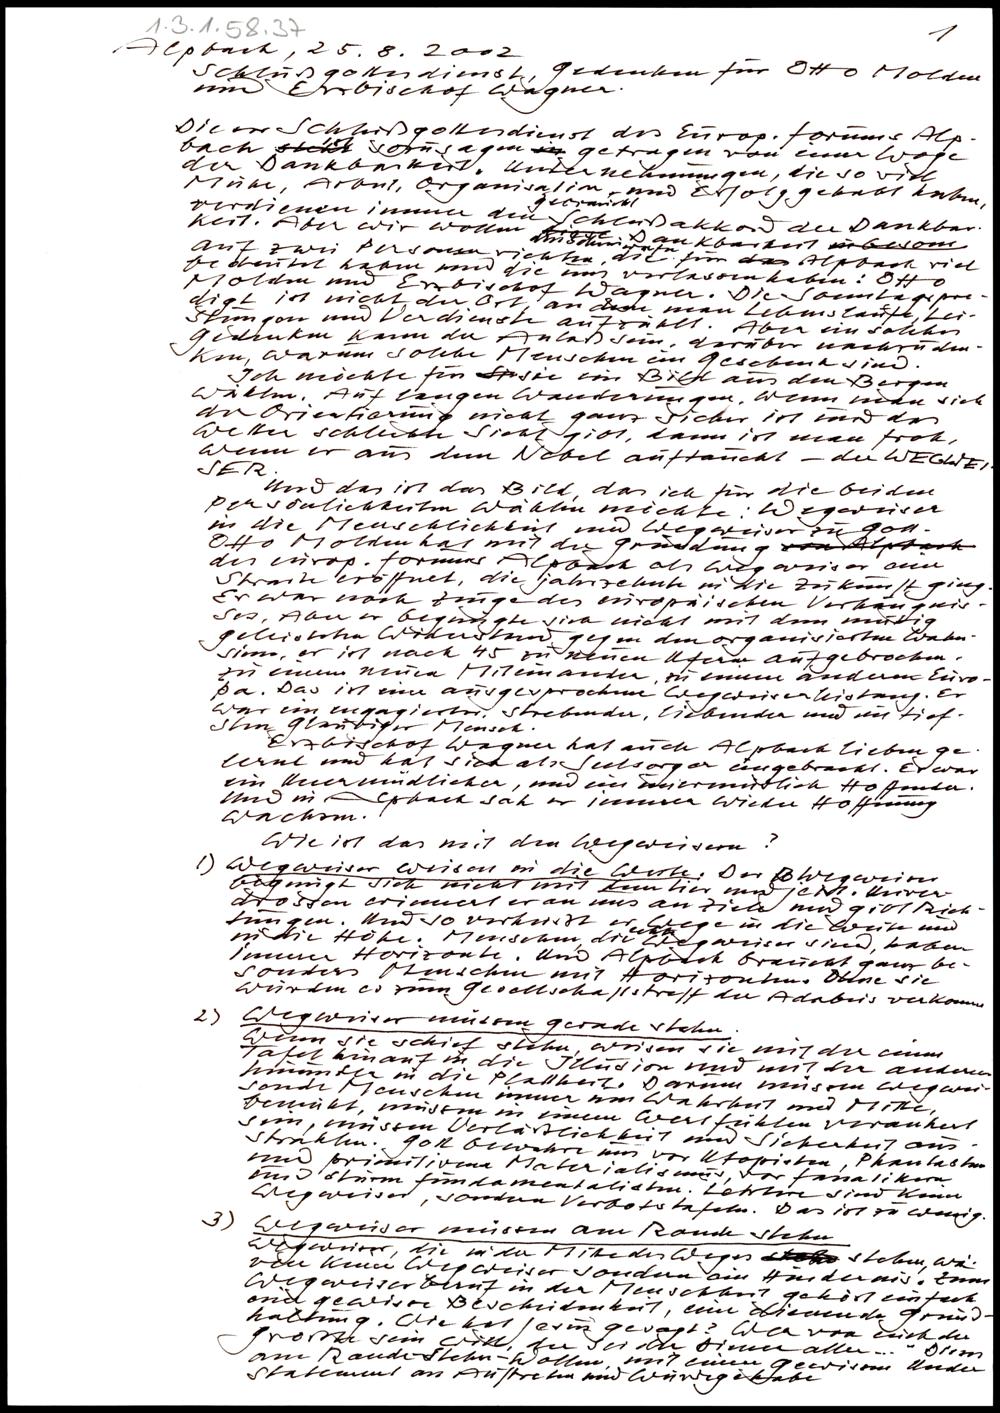 1.3.1.58.37
1
Alpbach, 25.8.2002
Schlußgottesdienst, Gedenken für Otto Molden
und Erzbischof Wagner.
Dieser Schlußgottesdienst des Europ. forums Alp-
bach sozusagen getragen von einer Woge
der Dankbarkeit. Unternehmungen, die so viel
Mühe, Arbeit, Organisation und Erfolg gehabt haben,
gebraucht
verdienen immer den Schlußakkord der Dankbar-
keit. Aber wir wollen Dankbarkeit
auf zwei Personen richten, die für Alpbach viel
bedeutet haben und die uns verlassen haben: Otto
Molden und Erzbischof Wagner. Die Sonntagspre-
digt ist nicht der Ort, an dem man Lebensläufe, Lei-
stungen und Verdienste aufzählt. Aber ein solches
Gedenken kann der Anlaß sein, darüber nachzuden-
ken, warum solche Menschen ein Geschenk sind.
Ich möchte für sie ein Bild aus den Bergen
wählen. Auf langen Wanderungen, wenn man sich
der Orientierung nicht ganz sicher ist und das
Wetter schlechte Sicht gibt, dann ist man froh,
wenn er aus dem Nebel auftaucht – der WEGWEI-
SER.
Und das ist das Bild, das ich für die beiden
Persönlichkeiten wählen möchte: Wegweiser
in die Menschlichkeit und Wegweiser zu Gott.
Otto Molden hat mit der Gründung von Alpbach
des europ. forums Alpbach als Wegweiser eine
Straße eröffnet, die jahrzehnte in die Zukunft ging.
Er war noch Zeuge des europäischen Verhängnis-
ses. Aber er begnügte sich nicht mit dem mutig
geleisteten Widerstand gegen den organisierten Wahn-
sinn, er ist nach 45 zu neuen Ufern aufgebrochen,
zu einem neuen Miteinander, zu einem anderen Euro-
pa. Das ist eine ausgesprochene Wegweiserleistung. Er
war ein engagierter, strebender, liebender und im tief-
sten gläubiger Mensch.
Erzbischof Wagner hat auch Alpbach lieben ge-
lernt und hat sich als Seelsorger eingebracht. Er war
ein Unermüdlicher, und ein unermüdlich Hoffender.
Und in Alpbach sah er immer wieder Hoffnung
wachsen.
Wie ist das mit den Wegweisern?
1) Wegweiser weisen in die Weite. Der Wegweiser
begnügt sich nicht mit dem hier und jetzt. Unver-
drossen erinnert er an uns an Ziele und gibt Rich-
tungen. Und so verheißt er Wege in die Weite und
in die Höhe. Menschen, die Wegweiser sind, haben
immer Horizonte. Und Alpbach braucht ganz be-
sonders Menschen mit Horizonten. Ohne sie
würden es zum Gesellschaftstreff der Adabeis verkommen
2) Wegweiser müssen gerade stehn.
Wenn sie schief stehn, weisen sie mit der einen
Tafel hinauf in die Illusion und mit der anderen
hinunter in die Plattheit. Darum müssen wegwei-
sende Menschen immer um Wahrheit und Mitte,
bemüht, müssen in einem Wertfühlen verankert
sein, müssen Verläßlichkeit und Sicherheit aus-
strahlen. Gott bewahre uns vor Utopisten, Phantasten
und primitivem Materialismus, vor fanatikern
und sturen fundamentalisten. Letztere sind keine
Wegweiser, sondern Verbotstafeln. Das ist zu wenig.
3) Wegweiser müssen am Rande stehn
Wegweiser, die in der Mitte des Weges stehen, wä-
ren keine Wegweiser sondern ein Hindernis. Zum
Wegweiserberuf in der Menschheit gehört einfach
eine gewisse Bescheidenheit, eine dienende Grund-
haltung. Wie hat Jesus gesagt? Wer von euch der
Größte sein will, der sei der Diener aller..." Dieses
am Rande-Stehn-Wollen, mit einem gewissen Under
statement an Auftreten und Würdegehabe